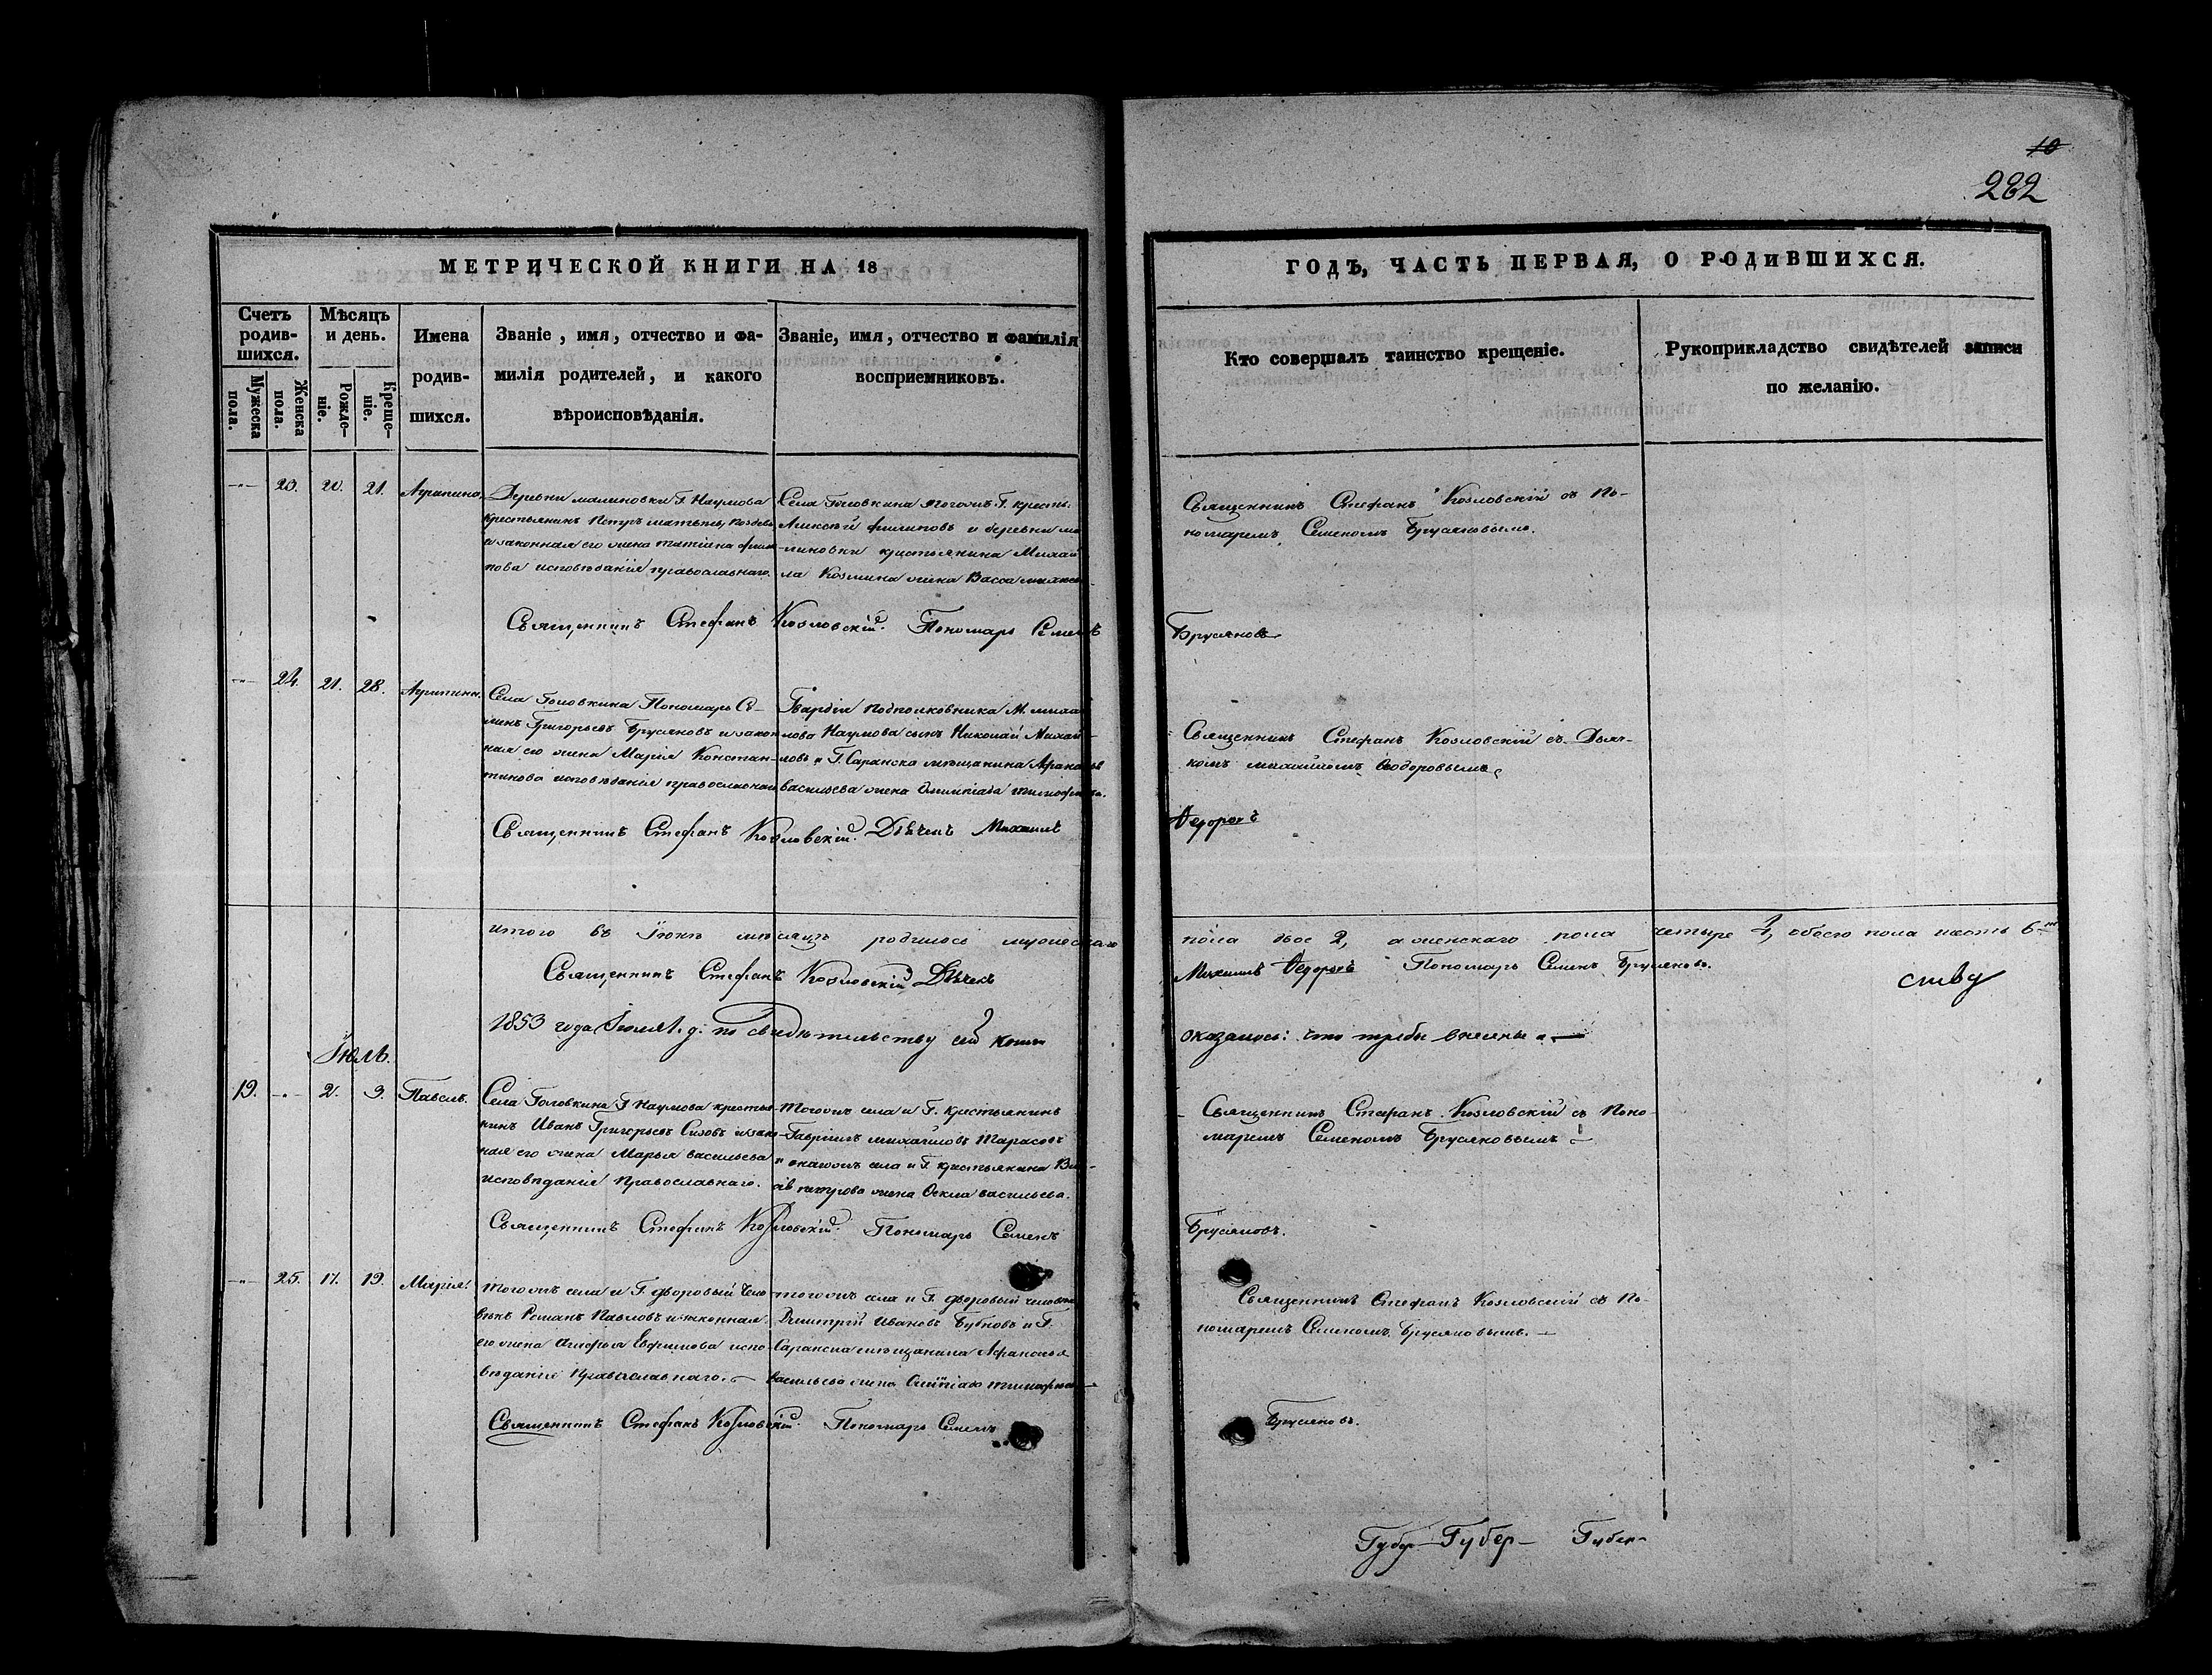 10
282
МЕТРИЧЕСКОЙ КНИГИ НА 18
ГОДЪ, ЧАСТЬ ПЕРВАЯ, О РОДИВШИХСЯ.
Счетъ родив-шихся.
Мужеска пола.
Женска пола.
Мѣсяцъ и день.
Рожде-ніе.
Креще-ніе.
Имена родив-шихся.
Званіе, имя, отчество и фа-
милія родителей, и какого
вѣроисповѣданія.
Званіе, имя, отчество и фамилія
восприемниковъ.
Кто совершалъ таинство крещеніе.
Рукоприкладство свидѣтелей записи
по желанію.
—"— 23. 20. 21. Агрипина.
Деревни малиновки Г. Наумова
крестьянинъ Петръ
и законная его жена татіана
пова исповѣданія православнаго.
Села Головкина тогожъ Г. крестья.
Алексѣй филиповъ и деревни ма
линовки крестьянина Михаи
ла Козмина жена Васса
Священникъ Стефанъ Козловскій съ По-
номаремъ Семеномъ Брусяновымъ.
Священникъ Стефанъ Козловскій. Пономарь Семенъ
Брусяновъ
—"— 24. 21. 28. Агрипина.
Села Головкина Пономарь Се-
менъ Григорьевъ Брусяновъ и закон
ная его жена Марія Констан-
тинова исповѣданія православнаго
Гвардіи Подполковника М. михаи
лова Наумова сынъ Николай Михай-
ловъ и Г. Саранска мѣщанина Афанасья
васильева жена Олимпіада тимофѣева.
Священникъ Стефанъ Козловскій съ Дьяч-
комъ михаиломъ Ѳедоровымъ.
Священникъ Стефанъ Козловскій. Дьячекъ Михаилъ
Ѳедоровъ
итого въ Іюнѣ мѣсяцѣ родилось мужескаго
пола двое 2, а женскаго пола четыре 4, обоего пола шесть 6
Священникъ Стефанъ Козловскій Дьячекъ
Михаилъ Ѳедоровъ Пономарь Семенъ Брусяновъ.
1853 года Іюля 1. д. по свидѣтельству сей книги
оказалось: что требы внесены
Іюль.
19. —"— 2. 3. Павелъ.
Села Головкина Г. Наумова крестья
нинъ Иванъ Григорьевъ Сизовъ и зако
ная его жена Марья васильева
исповѣданія Православнаго.
Тогожъ села и Г. крестьянинъ
Гавріилъ михаиловъ Тарасовъ
и онагожъ села и Г. крестьянина
петрова жена Ѳекла васильева.
Священникъ Стефанъ Козловскій съ Поно-
маремъ Семеномъ Брусяновымъ
Священникъ Стефанъ Козловскій. Пономарь Семенъ
Брусяновъ.
—"— 25. 17. 19. Марія.
тогожъ села и Г. дворовый чело
вѣкъ Романъ Павловъ и законная
его жена Евфимова испо
вѣданія Православнаго.
тогожъ села и Г. дворовый человѣкъ
Дмитрій Ивановъ Бубновъ и Г.
Саранска мѣщанина Афанасья
васильева жена тимофѣева
Священникъ Стефанъ Козловскій съ По-
номаремъ Семеномъ Брусяновымъ.
Священникъ Стефанъ Козловскій. Пономарь Семенъ
Брусяновъ.
Губер— Губер— Губер—